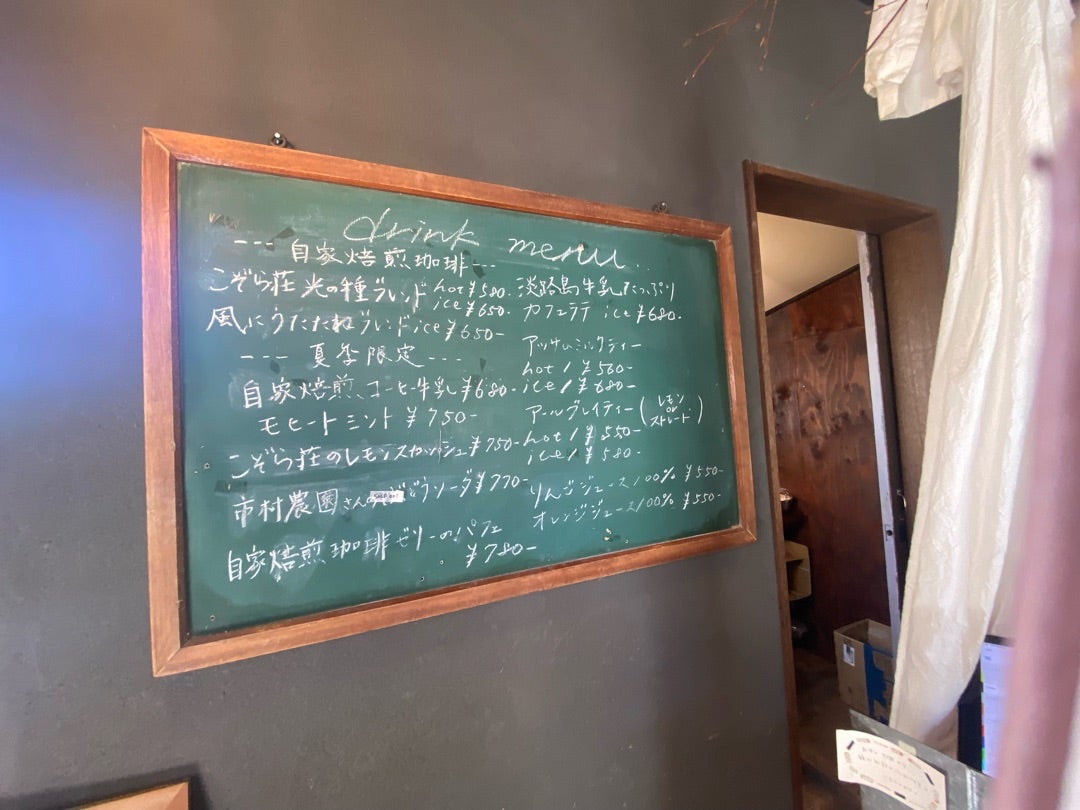 drink menu
--- 自家焙煎珈琲 ---
こぞら荘 光の種ブレンド hot ¥580-
ice ¥650-
風にうたたねブレンド ice ¥650-
--- 夏季限定 ---
自家焙煎コーヒー牛乳 ¥680-
モヒートミント ¥750-
こぞら荘のレモンスカッシュ ¥750-
市村農園さんの ぶどうソーダ ¥770-
SOLD OUT
自家焙煎珈琲ゼリーのパフェ
¥780-
淡路島牛乳たっぷり
カフェラテ ice ¥680-
アッサムミルクティー
hot / ¥560-
ice / ¥680-
アールグレイティー (レモン or ストレート)
hot / ¥550-
ice / ¥580-
りんごジュース100% ¥550-
オレンジジュース100% ¥550-